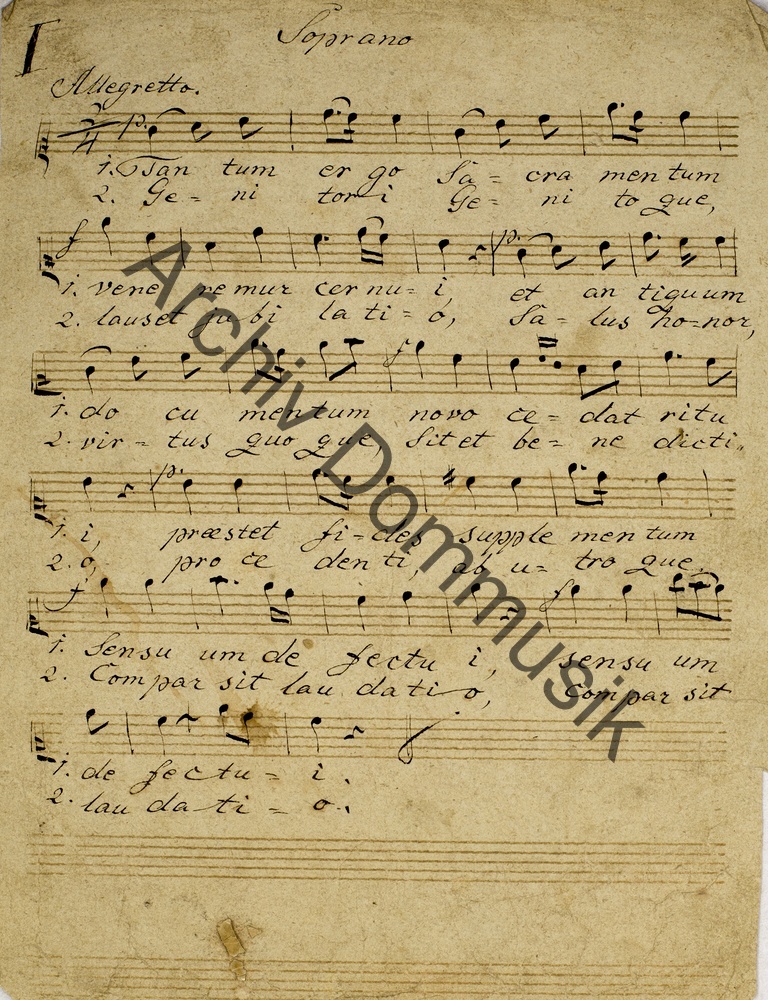 I
Soprano
Allegretto.
2/4 p.
1. Tan tum er go Sa = cra men tum
2. Ge = ni tor i Ge = ni to que,
f p.
1. vene re mur cer nu = i, et an tiquum
2. lauset ju bi la ti = o, Sa = lus ho=nor,
f
1. do cu mentum novo ce = dat ritu
2. vir = tus quo que, Sit et be = ne dicti
p.
1. i, præstet fi=des supple men tum
2. o, pro ce den ti, ab u = tro que.
f f
1. Sensu um de fectu i, sensu um
2. Compar sit lau dati o, Compar sit
1. de fectu = i.
2. lau da ti = o.
Archiv Dommusik